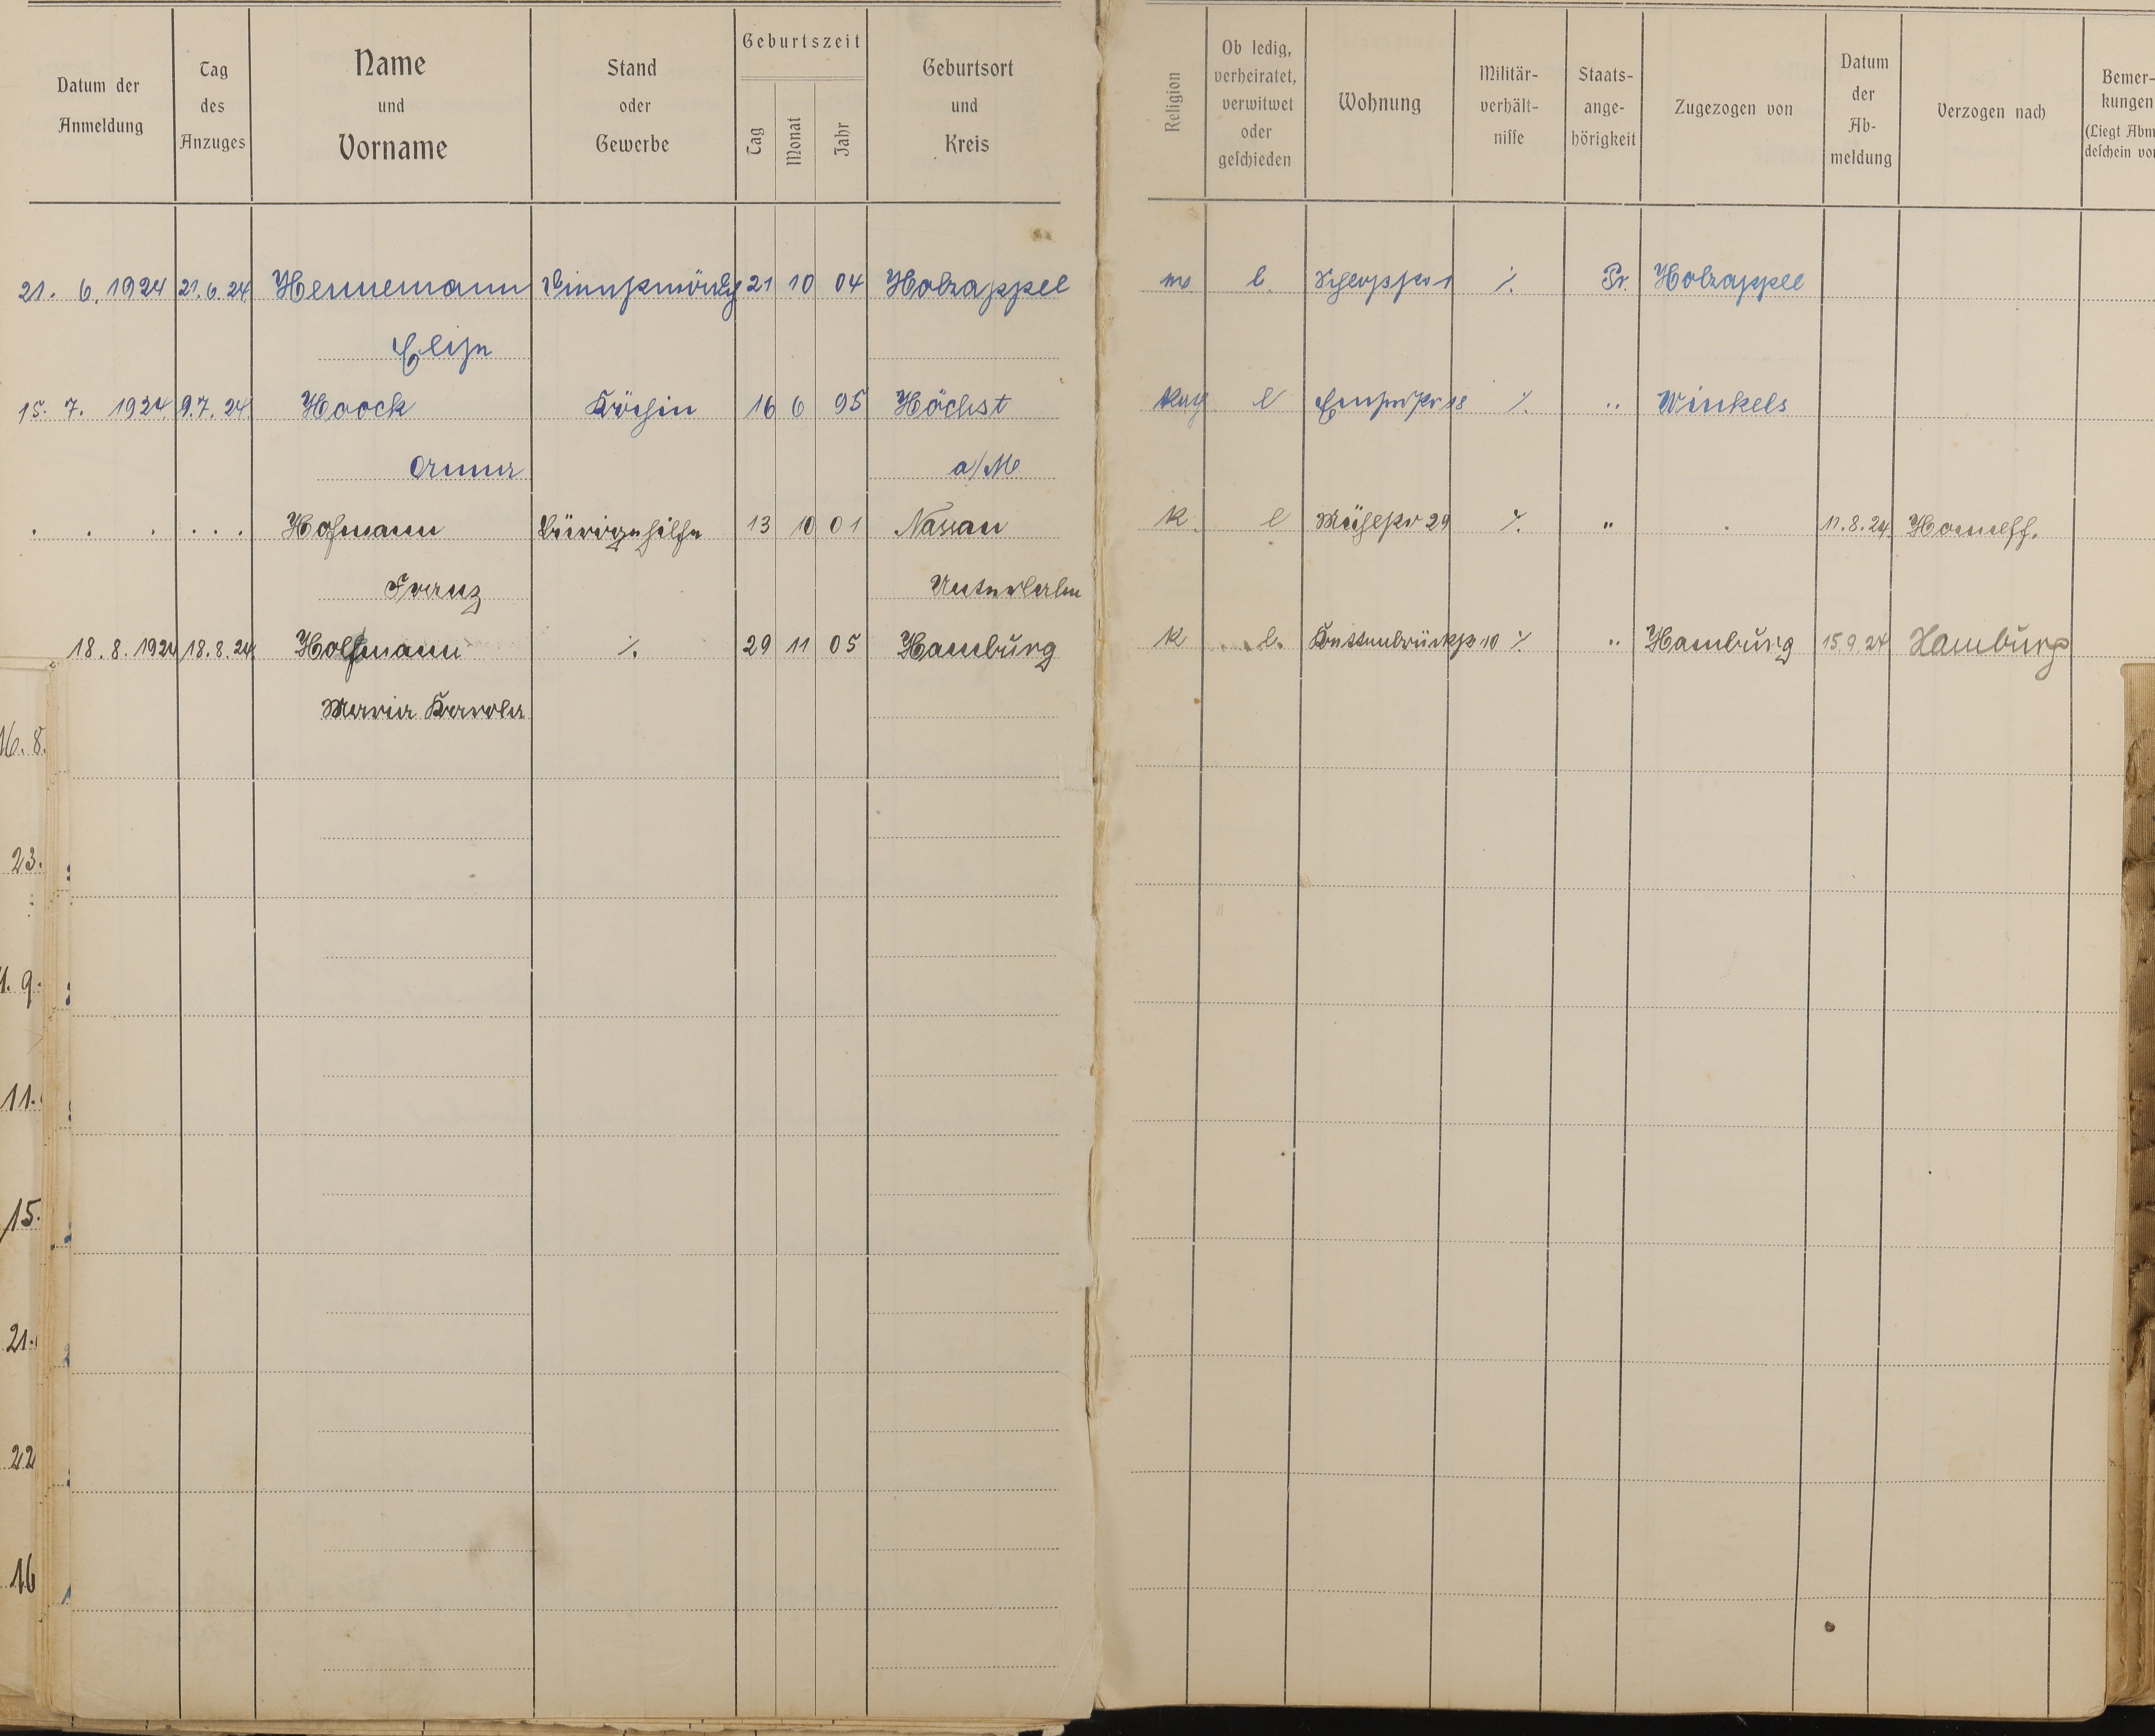 Datum der Anmeldung
Tag des Anzuges
Name und Vorname
Stand oder Gewerbe
Geburtszeit
Tag
Monat
Jahr
Geburtsort und Kreis
Religion
Ob ledig, verheiratet, verwitwet oder geschieden
Wohnung
Militär-verhält-nisse
Staats-ange-hörigkeit
Zugezogen von
Datum der Ab-meldung
Verzogen nach
Bemer-kungen
(Liegt Abm
deschein vor
21. 6. 1924 21.6.24 Hennemann Dienstmädch 21 10 04 Holzappel l. 1 ⁒ Pr. Holzappel
Elise
15. 7. 1924 9.7.24 Hoock Köchin 16 6 95 Höchst l Emserstr 18 ⁒ " Winkels
Anna a/M
. . . . . . Hofmann Bürogehilfe 13 10 01 Nassau k. l 29 ⁒ " . 11.8.24 Honneff.
Franz Unterlahn
18. 8. 1924 18.8.24 Hofmann ⁒ 29 11 05 Hamburg k l. Kettenbrückstr 10 ⁒ " Hamburg 15.9.24 Hamburg
Maria Karola
16. 8.
23.
9.
11.
15.
21.
22
16